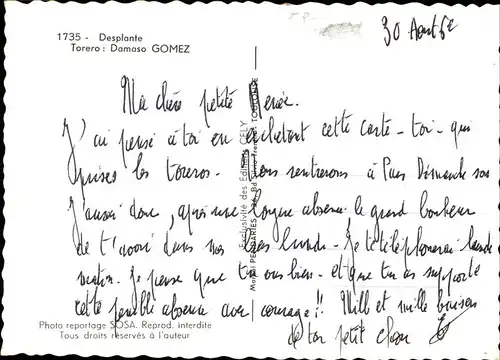 1735 - Desplante
Torero : Damaso GOMEZ
30 Août
Ma chère petite
J'ai pensé à toi en achetant cette carte - toi - qui
prises les toreros. - rentrerons à Paris Dimanche soir
J'aurai donc, après une longue absence le grand bonheur
de t'avoir dans mes bras lundi. Je te téléphonerai lundi
matin. Je pense que tu vas bien - et que tu as supporté
cette pénible absence avec courage !! Mille et mille baisers
de ton petit
Exclusivité des Editions CELY
TOULOUSE
Photo reportage SOSA. Reprod. interdite
Tous droits réservés à l'auteur